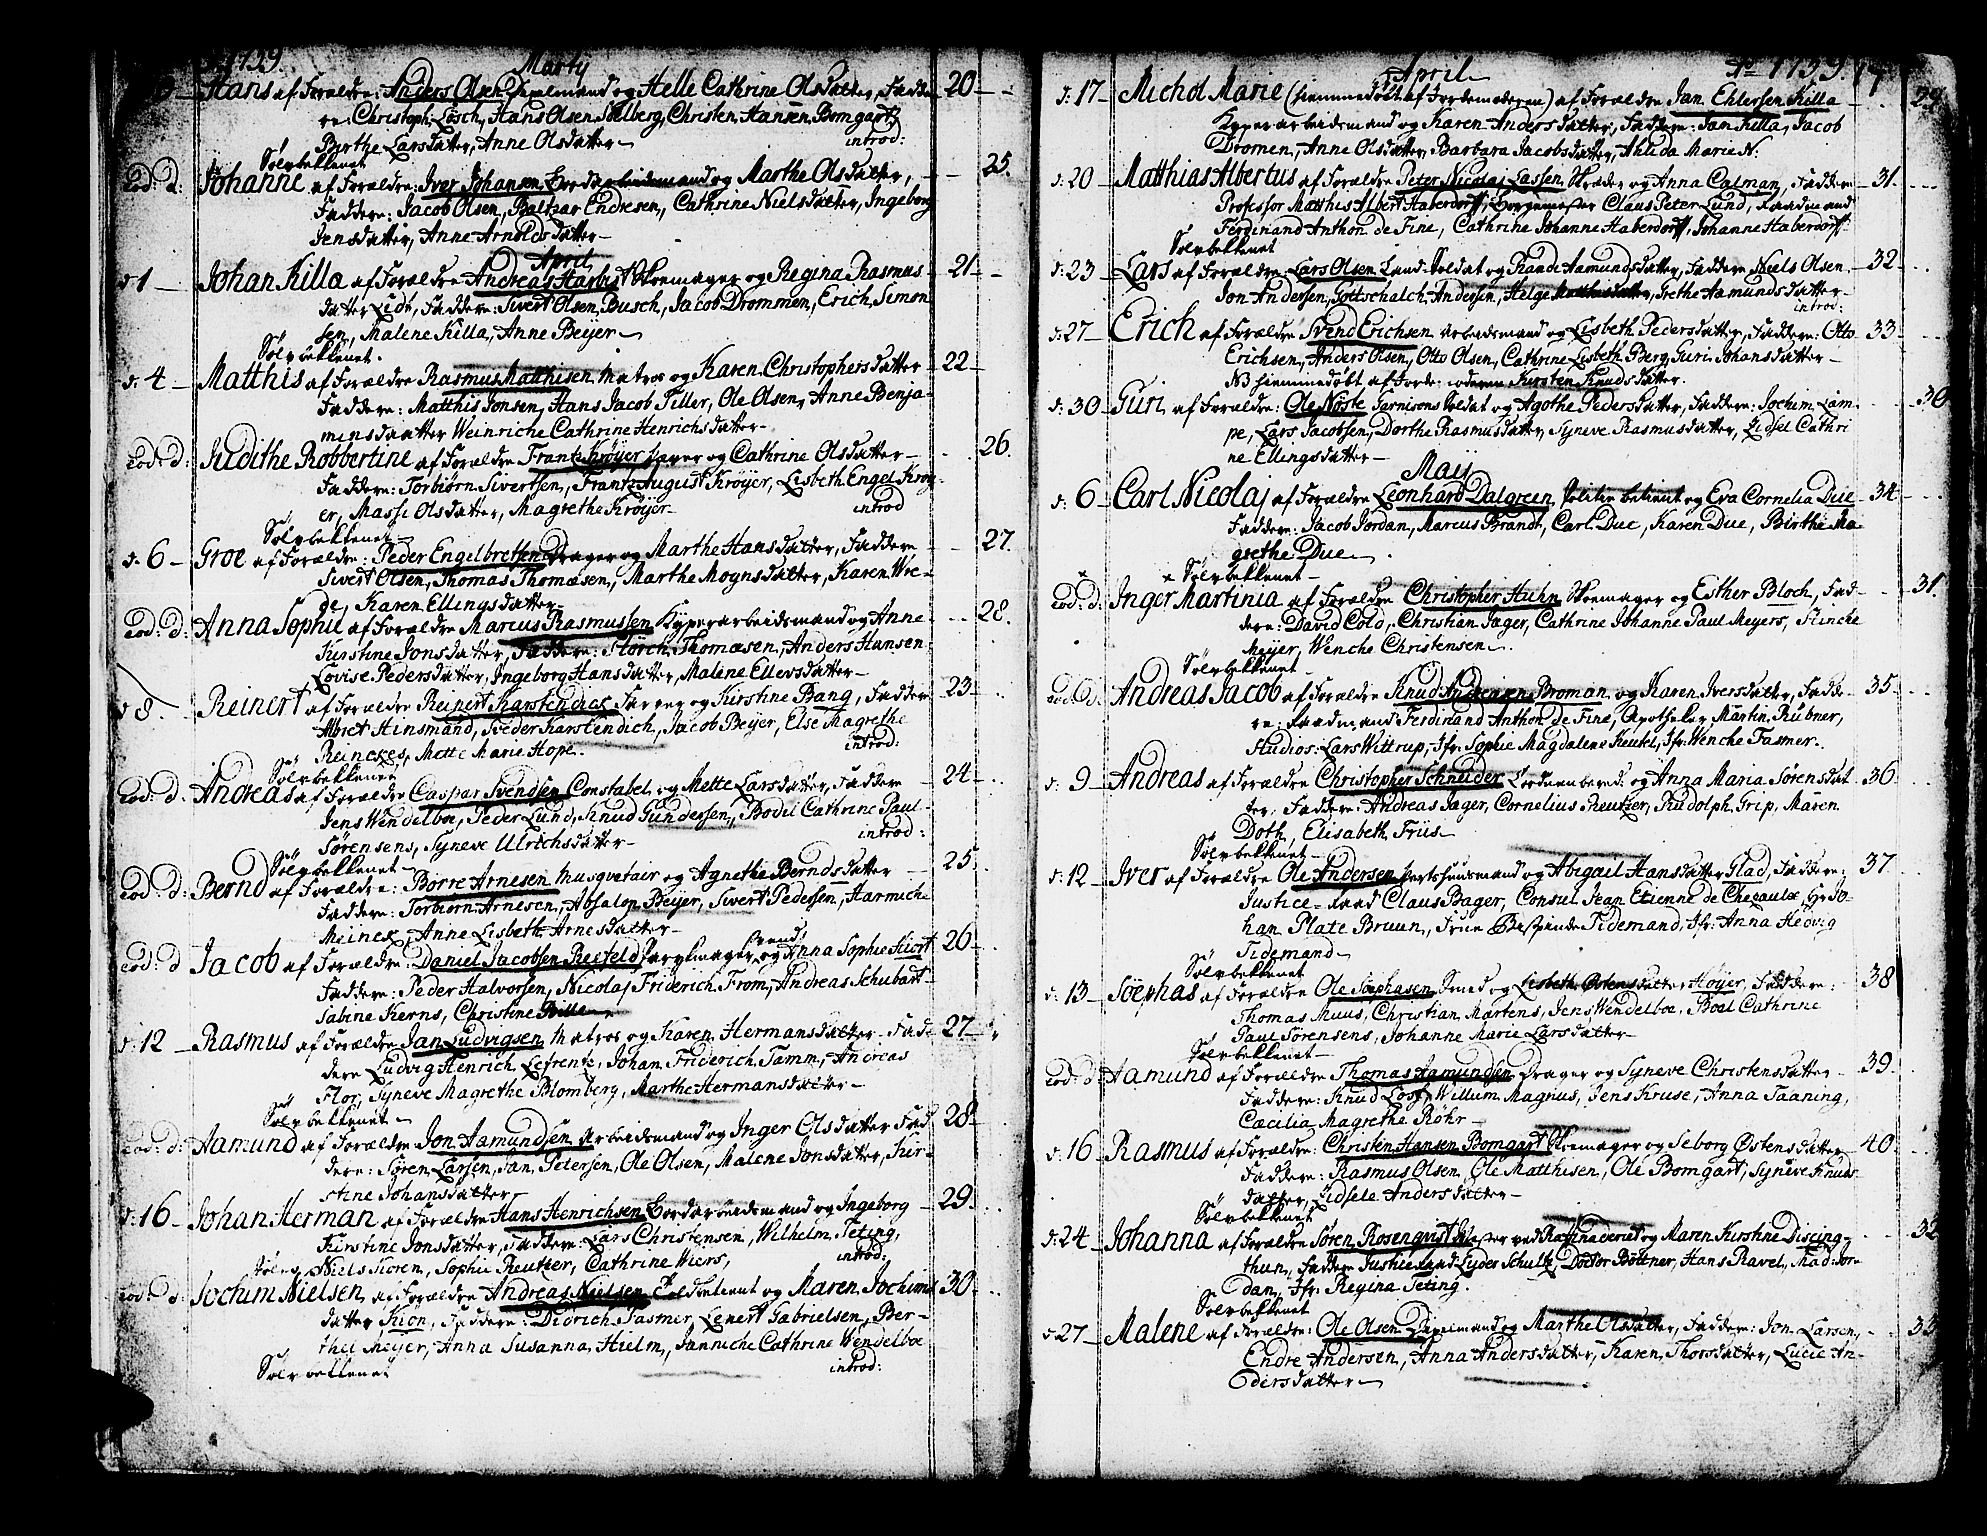 1759. Marty
Hans af Forældre: Anders Olsen og Helle Cathrine Olsdatter, Fadde 20
re: Christoph: Lösch, Hans Olsen Solberg, Christen Hansen Bomgart
Birthe Larsdatter, Anne Olsdatter introd:
Sölvbekkenet
Eod: d: Johanne af Forældre: Iver Johansen Bordarbeidsmand og Marthe Olsdatter, 25.
Faddere: Jacob Olsen, Baltzar Endresen, Cathrine Nielsdatter, Ingeborg
Jensdatter, Anne Arnoldsdatter
April
d 1 Johan Killa af Forældre Andreas Skoemager og Regina Rasmus 21
datter Lidt, Faddere: Sivert Olsen Busch, Jacob Drommen, Erich Simon
sen, Malene Killa, Anne Beyer
Sölvbekkenet.
d: 4 Matthis af Forældre Rasmus Matthisen Matros og Karen Christophersdatter 22
Faddere: Matthis Jonsen, Hans Jacob Tiller, Ole Olsen, Anne Benja-
minsdaatter Weinriche Cathrine Henrichsdatter
Eod: d: Judithe Robbertine af Forældre Frantz Kröyer og Cathrine Olsdatter 26.
Faddere: Torbiørn Sivertsen, Frantz August Kröyer, Lisbeth Engel Kröy
er, Masse Olsdatter, Magrethe Kröyer introd
Sölvbekkenet
d. 6 Groe af Forældre: Peder Engelbretsen Drager og Marthe Hansdatter, Faddere 27.
Sivert Olsen, Thomas Thomæsen, Marthe Moynsdatter, Karen Wre-
de, Karen Ellingsdatter
Eod: d: Anna Sophie af Forældre Marcus Rasmussen Kyperarbeidsmand og Anne 28.
Kirstine Jonsdatter, Faddere: Störch Thomæsen, Anders Hansen
Lovise Pedersdatter, Ingeborg Hansdatter, Malene Ellersdatter
d 8. Reinert af Forældre Reinert Karstendick Farver og Kirstine Bang, Faddere 23
Albret Hinsmand, Karstendich, Jacob Beyer, Else Magrethe
Reinckes, Mette Marie Hope. introd:
Sölvbekkenet
Eod: d. Andreas af Forældre Caspar Svendsen Constabel og Mette Larsdatter, Faddere 24
Jens Wendelboe, Peder Lund, Knud Gundersen, Bodil Cathrine Paul
Sørensens, Syneve Ulrichsdatter introd:
Sölvbekkenet
Eod: d: Bernd af Forældre: Börre Arnesen Musqvetair og Agnethe Berndsdatter 25
Faddere: Torbiørn Arnesen, Absalon Beyer, Sivert Pedersen, Harmiche
Meinex, Anne Lisbeth Arnesdatter
Eod: d Jacob af Forældre: Daniel Jacobsen Resteld og Anna Sophie 26
Faddere: Peder Halvorsen, Nicolaj Friderich From, Andreas Schubart
Sabine Kerns, Christine Bille
d: 12 Rasmus af Forældre Jan Ludvigsen Matros og Karen Hermansdatter. Fad 27
dere Ludvig Henrich Lefrentz, Johan Friderich Tamm, Andreas
Flor, Syneve Magrethe Blomberg, Marthe Hermansdatter
Sölvbekkenet
Eod: d: Aamund af Forældre Jon Aamundsen Arbeidsmand og Inger Olsdatter Fad 28
dere: Søren Larsen, Jan Petersen, Ole Olsen, Malene Jonsdatter, Kir-
stine Johansdatter
d: 16 Johan Herman af Forældre Hans Henrichsen Bordarbeidsmand og Ingeborg 29
Kirstine Jonsdatter, Faddere: Lars Christensen, Wilhelm Teting,
Niels Koren, Sophie Reutzer, Cathrine Wiers, introd:
Eod: d: Jochim Nielsen af Forældre Andreas Nielsen og Maren Jochims 30
datter Kion, Faddere: Didrich Fasmer, Lenert Gabrielsen, Ber-
thel Meyer, Anna Susanna Hielm, Janniche Cathrine Wendelboe
Sölvbekkenet introd:
April Ao 1759. 17
d: 17 Michol Marie (hiemmedøbt af Jordemoderen) af Forældre Jan Ehlersen Killa 29
Kyperarbeidsmand og Karen Andersdatter, Faddere: Jan Killa, Jacob
Dromen, Anne Olsdatter, Barbara Jacobsdatter, Ahlida Marie N:
d: 20 Matthias Albertus af Forældre Peter Nicolaj Lassen Skræder og Anna Calman, Faddere 31.
Professor Matthis Albert Haberdorff, Borgemester Claus Peter Lund, Raadmand
Ferdinand Anthon de Fine, Cathrine Johanne Haberdorff, Johanne Haberdorff.
Sölvbekkenet
d: 23 Lars af Forældre: Lars Olsen Land-Soldat og Randi Aamundsdatter, Faddere Niels Olsen 32
Jon Andersen, Gottschalch Andersen, Helge Matthisdatter, Grethe Aamundsdatter
introd:
d: 27 Erich af Forældre Svend Erichsen Arbeidsmand og Lisbeth Pedersdatter, Faddere: Otto 33
Erichsen, Anders Olsen, Otto Olsen, Cathrine Lisbeth Berg, Guri Johansdatter
NB hiemmedøbt af Jorde: moderen Kirsten Knudsdatter.
d: 30 Guri af Forældre: Ole Noste Garnisons Soldat og Agothe Pedersdatter, Faddere: Jochim Lam- 30
pe, Lars Jacobsen, Dorthe Rasmusdatter, Syneve Rasmusdatter, Lidsel Cathri
ne Ellingsdatter
Maij
d: 6 Carl Nicolaj af Forældre Leonhard Dalgreen Politie betient og Eva Cornelia Due 34
Faddere: Jacob Jordan, Marcus Brandt, Carl Due, Karen Due, Birthe Ma
grethe Due
Sölvbekkenet
Eod: d: Inger Martinia af Forældre Christopher Huhn Skoemager og Esther Bloch, Fad- 31.
dere: David Cold, Christian Jager, Cathrine Johanne Paul Meyers, Hincke
Meyer, Wenche Christensen.
Sölvbekkenet
Eod: d: Andreas Jacob af Forældre Knud Andreasen Broman og Karen Iversdatter, Fadde 35
re: Raadmand Ferdinand Anthon de Fine, Apotheker Martin Rübner,
Studios: Lars Wittrup, Jfr: Sophie Magdalene Keutel, Jfr: Wenche Fasmer.
d: 9 Andreas af Forældre Christopher Schneider og Anna Maria Sørensdat 36
ter: Faddere: Andreas Jager, Cornelius Reutzer, Rudolph Grip, Maren
Doth, Elisabeth Friis
Sölvbekkenet
d: 12 Iver af Forældre Ole Andersen og Abigail Hansdatter Glad, Faddere: 37
Justice-Raad Claus Bager, Consul Jean Etienne de Chezaulx, Hr Jo-
han Plate Bruun, Frue Tidemand, Jfr: Anna Hedvig
Tidemand
Sölvbekkenet
d: 13 Söephas af Forældre Ole Søephasen Smed og Lisbeth Östensdatter Höyer, Faddere: 38
Thomas Muus, Christian Martens, Jens Wendelboe, Boel Cathrine
Paul Sørensens, Johanne Marie Larsdatter
Sölvbekkenet
Eod: d: Aamund af Forældre Thomas Aamundsen Drager og Syneve Christensdatter 39.
Faddere: Knud Losz, Willum Magnus, Jens Kruse, Anna Taaning,
Cæcilia Magrethe Röhr
d: 16 Rasmus af Forældre: Christen Hansen Bomgart Skoemager og Seborg Østensdatter 40.
Faddere: Rasmus Olsen, Ole Matthisen, Ole Bomgart, Syneve Knuds
datter, Lidsele Andersdatter
Sölvbekkenet
d: 24 Johanna af Forældre Sören Rosenqvist Mester ved Raffinaderiet og Maren Kirstine Discing- 32
thun, Faddere Justice Raad Eyder Schultz, Doctor Böttner, Hans Ravel, Mad: Jor-
dan, Jfr: Regina Teting.
Sölvbekkenet
d: 27 Malene af Forældre: Ole Olsen og Marthe Olsdatter, Faddere: Jon Larsen, 33
Endre Andersen, Anna Andersdatter, Karen Thorsdatter, Lucie An-
dersdatter